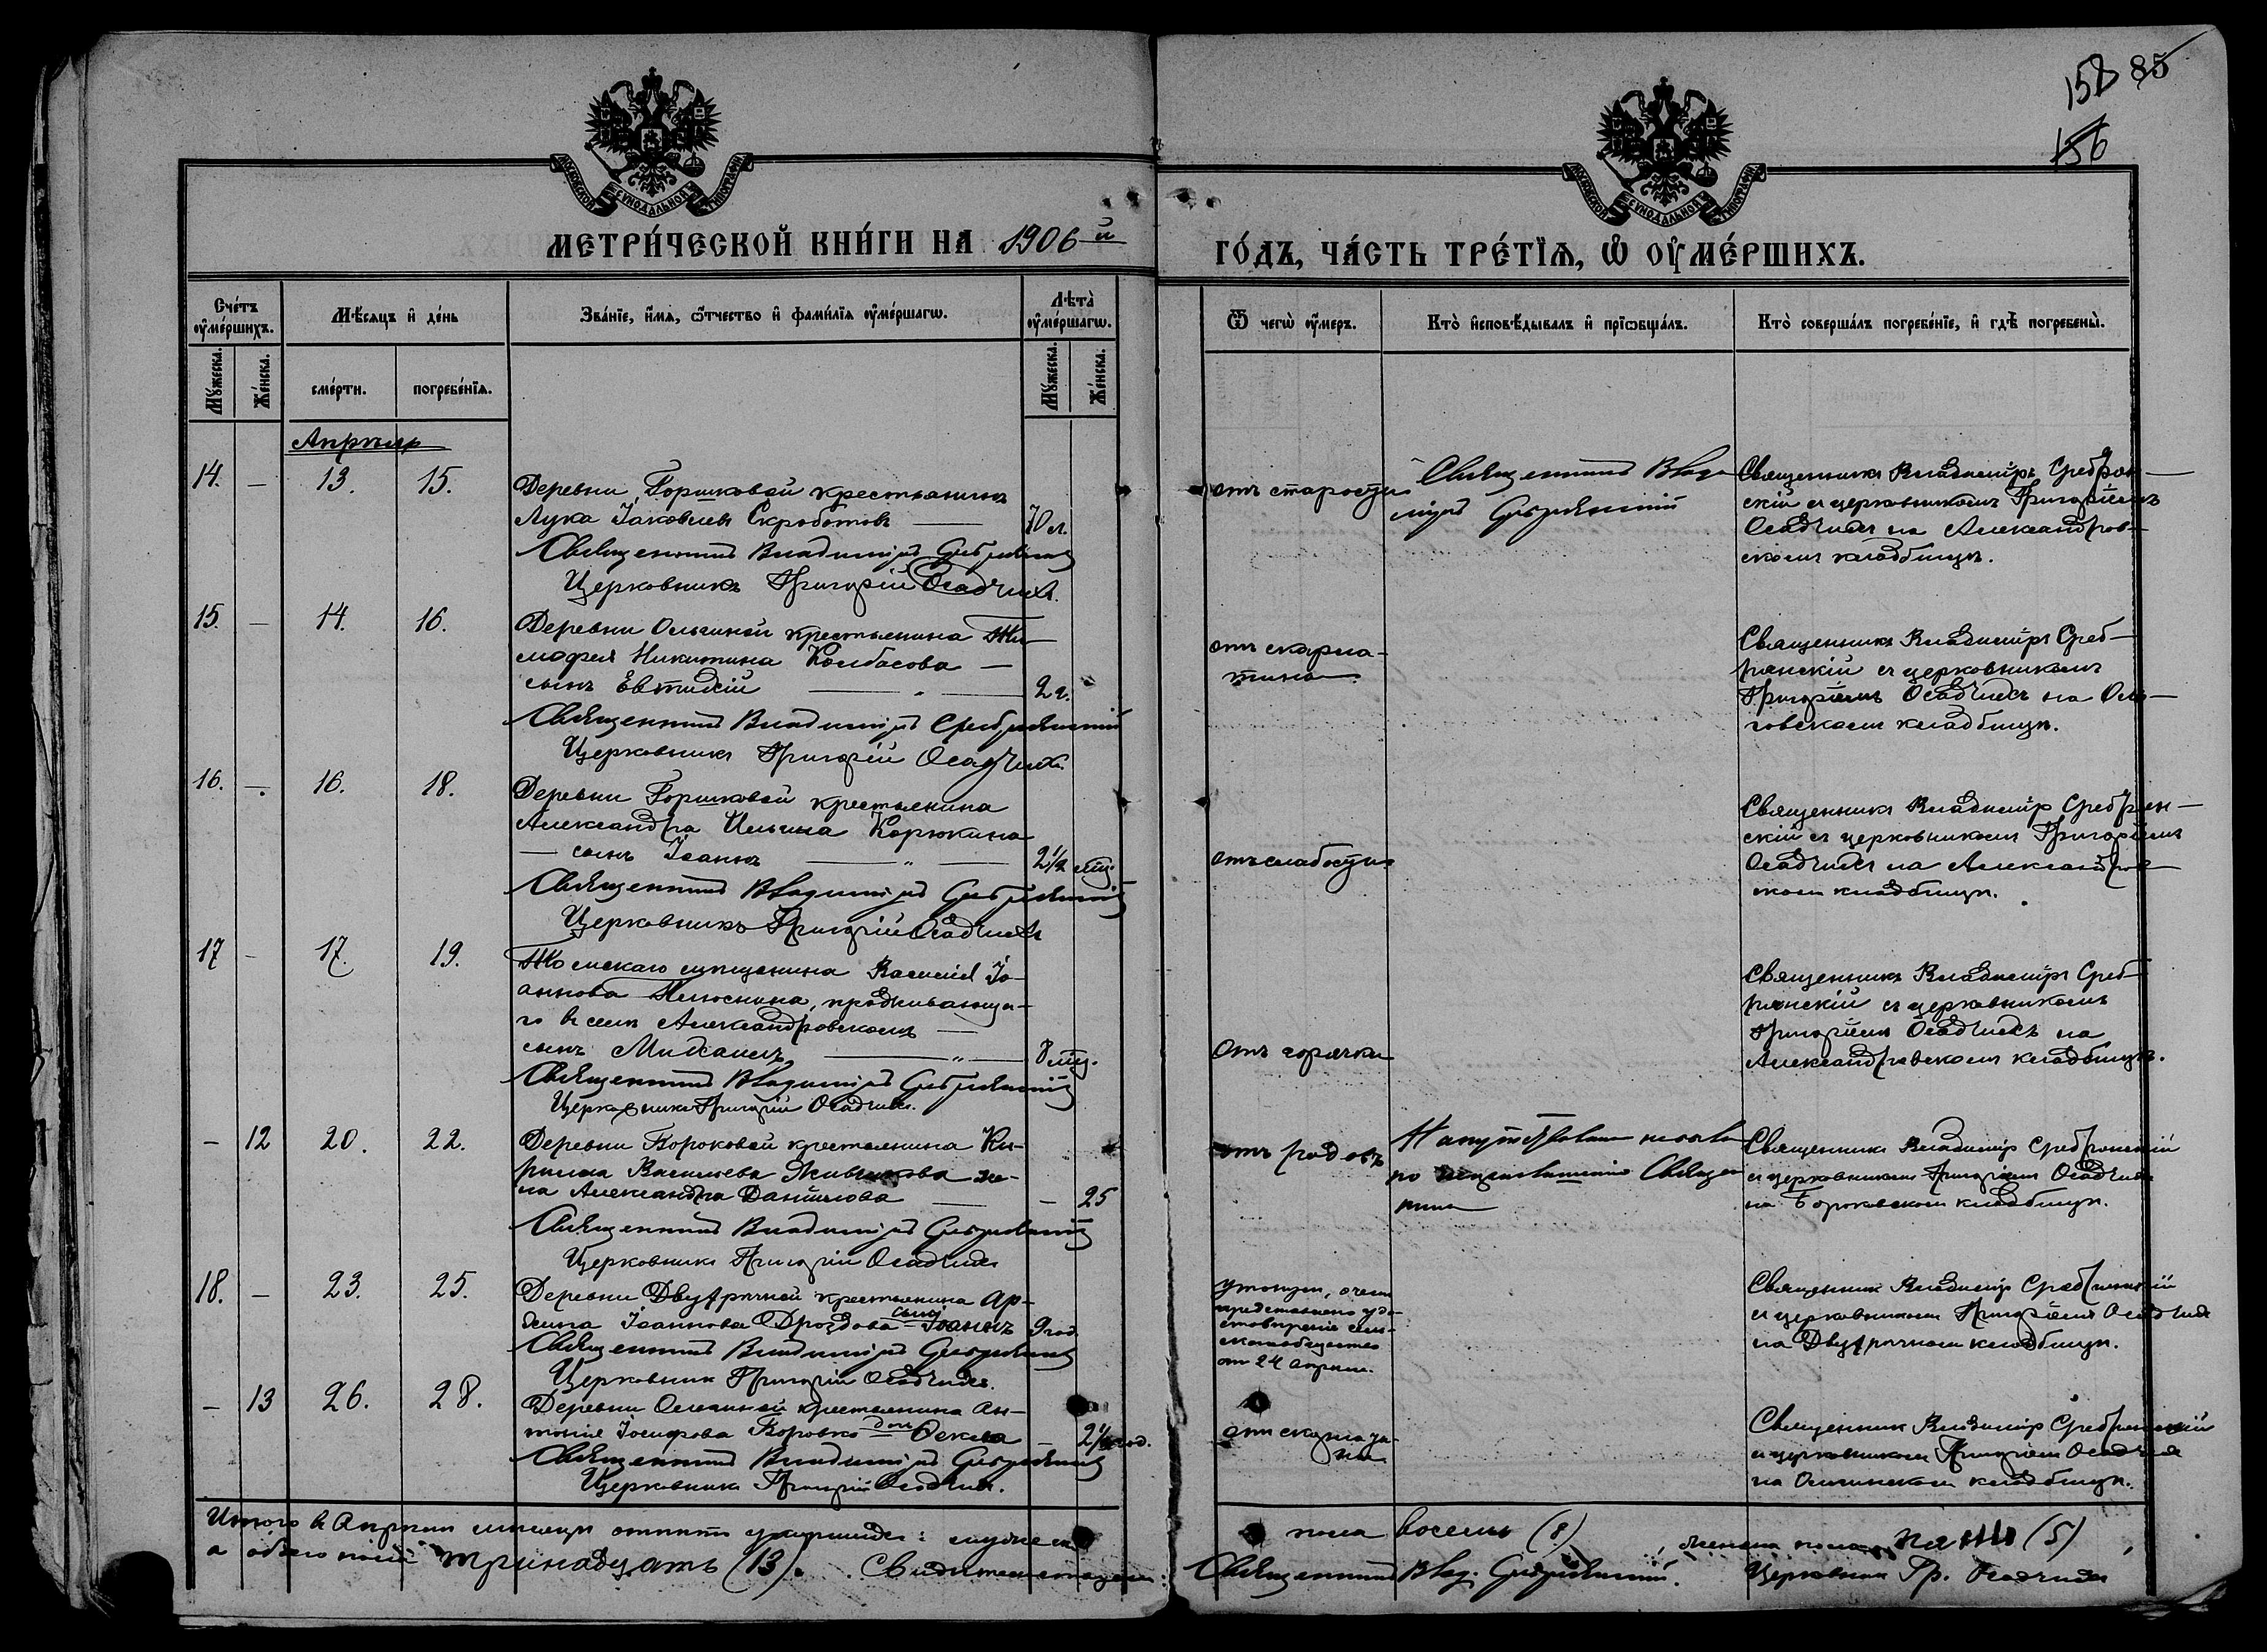 158 85
156
МОСКОВСКОЙ СѴНОДАЛЬНОЙ ТИПОГРАФІИ
МОСКОВСКОЙ СѴНОДАЛЬНОЙ ТИПОГРАФІИ
МЕТРИ́ЧЕСКОЙ КНИ́ГИ НА 1906й
ГО́ДЪ, ЧА́СТЬ ТРЕ́ТЇѦ, Ѡ҆ ОУ҆МЕ́РШИХЪ.
Сче́тъ оу҆ме́ршихъ.
Мꙋжеска.
Же́нска.
Мѣ́сяцъ и҆ де́нь
сме́рти.
погребе́нїѧ.
Зва́нїе, и҆́мѧ, ѻ҆́тчество и҆ фами́лїѧ оу҆ме́ршагѡ.
Лѣта̀ оу҆ме́ршагѡ.
Мꙋжеска.
Же́нска.
Ѿ чегѡ̀ оу҆́меръ.
Кто̀ и҆сповѣ́дывалъ и҆ прїѡбща́лъ.
Кто̀ соверша́лъ погребе́нїе, и҆ гдѣ̀ погребены̀.
Апрѣль
14. — 13. 15.
Деревни Горшковой крестьянинъ
Лука Іаковлевъ Скроботовъ — 70 л.
Священникъ Владиміръ Сребрянскій
Церковникъ Григорій Осадчихъ.
отъ старости
Священникъ Влади
міръ Сребрянскій
Священникъ Владиміръ Сребрян-
скій съ церковникомъ Григоріемъ
Осадчихъ на Александров-
скомъ кладбищѣ.
15. — 14. 16.
Деревни Ольгиной крестьянина Ти-
мофея Никитина Колбасова —
сынъ Евтихій — 2 г.
Священникъ Владиміръ Сребрянскій
Церковникъ Григорій Осадчихъ
отъ скарла-
тина
Священникъ Владиміръ Среб-
рянскій съ церковникомъ
Григоріемъ Осадчихъ на Оль-
говскомъ кладбищѣ.
16. — 16. 18.
Деревни Горшковой крестьянина
Александра Ильина Корюкина
— сынъ Іоаннъ — 2½ мѣц.
Священникъ Владиміръ Сребрянскій
Церковникъ Григорій Осадчихъ
отъ слабости
Священникъ Владиміръ Сребрян-
скій съ церковникомъ Григоріемъ
Осадчихъ на Александров-
скомъ кладбищѣ.
17 — 17. 19.
Томскаго мѣщанина Василія Іо-
аннова проживающа-
го въ селѣ Александровскомъ —
сынъ Михаилъ — 8 мѣц.
Священникъ Владиміръ Сребрянскій
Церковникъ Григорій Осадчихъ.
Отъ горячки
Священникъ Владиміръ Среб-
рянскій съ церковникомъ
Григоріемъ Осадчихъ на
Александровскомъ кладбищѣ.
— 12 20. 22.
Деревни Бороковой крестьянина Ки-
рилла Васильева же-
на Александра Данилова — 25
Священникъ Владиміръ Сребрянскій
Церковникъ Григорій Осадчихъ
отъ родовъ
по Священ
ника
Священникъ Владиміръ Сребрянскій
съ церковникомъ Григоріемъ Осадчихъ
на Бороковскомъ кладбищѣ.
18. — 23. 25.
Деревни Двурѣчной крестьянина Ар-
хипа Іоаннова Дроздова — сынъ Іоаннъ 9 год.
Священникъ Владиміръ Сребрянскій
Церковникъ Григорій Осадчихъ.
утонулъ, о чемъ
представлено удо-
стовѣреніе сель-
скаго общества
отъ 24 апрѣля.
Священникъ Владиміръ Сребрянскій
съ церковникомъ Григоріемъ Осадчихъ
на Двурѣчномъ кладбищѣ.
— 13 26. 28.
Деревни Ольгиной крестьянина Ан-
тонія Іосифова Боровко — дочь Фекла — 2½ год.
Священникъ Владиміръ Сребрянскій
Церковникъ Григорій Осадчихъ.
отъ скарла-
тины
Священникъ Владиміръ Сребрянскій
съ церковникомъ Григоріемъ Осадчихъ
на Ольгинскомъ кладбищѣ.
Итого въ Апрѣлѣ мѣсяцѣ умершихъ: мужеска пола восемь (8), женска пола пять (5),
а обоего пола тринадцать (13). Свидѣтельствуемъ: Священникъ Влад. Сребрянскій. Церковникъ Гр. Осадчихъ